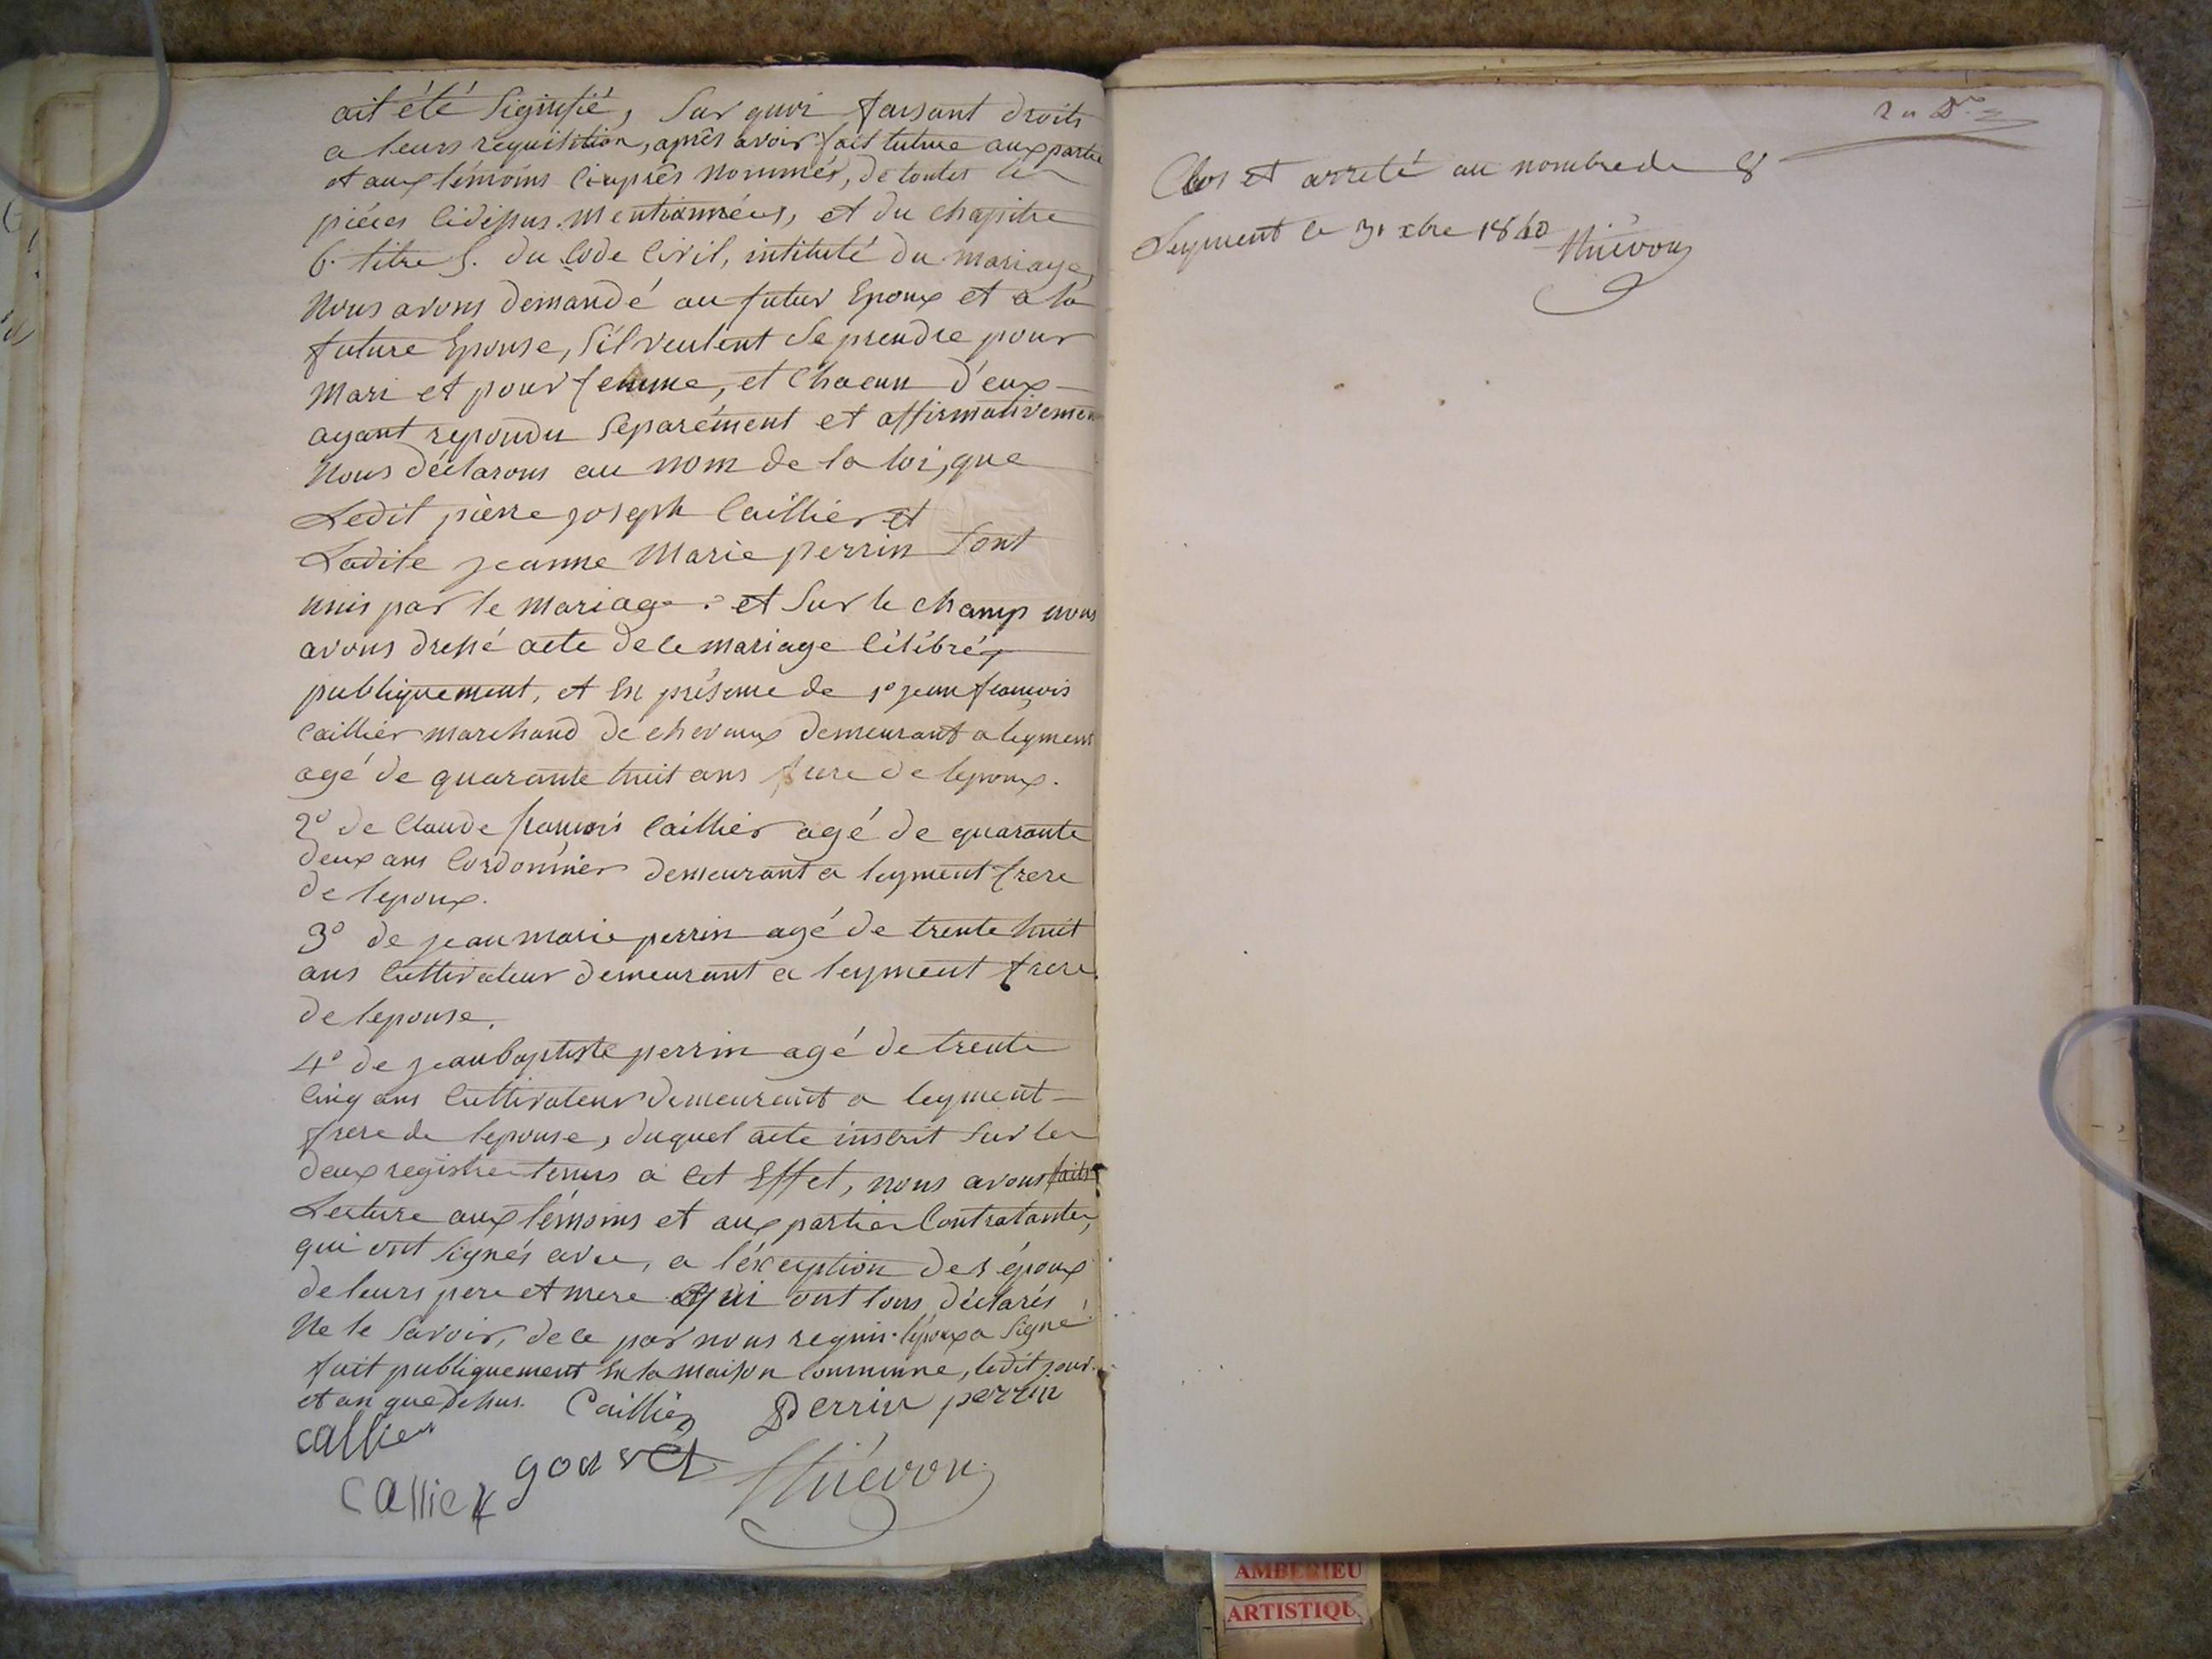 ait été signifié, sur quoi faisant droits
a leurs requisition, après avoir fait lecture aux partie
et aux témoins ciaprès nommés, de toutes les
pièces cidessus mentionnées, et du chapitre
6. titre 5. du Code Civil, intitulé du mariage,
Nous avons demandé au futur Epoux et a la
future Epouse, s'il veulent se prendre pour
Mari et pour femme, et Chacun d'eux
ayant repondu separément et affirmativemen
Nous déclarons au nom de la loi, que
Ledit pièrre joseph Caillier et
Ladite jeanne Marie perrin sont
unis par le mariage. et sur le champ nous
avons dressé acte de ce mariage célébré
publiquement, et En présence de 1º jean françois
Caillier marchand de chevaux demeurant a leyment
agé de quarante huit ans frere de lepoux.
2º de Claude françois Caillier agé de quarante
deux ans Cordonnier demeurant a leyment frere
de lepoux.
3º de jean marie perrin agé de trente huit
ans Cultivateur demeurant a leyment frere
de lepouse.
4º de jean baptiste perrin agé de trente
Cinq ans Cultivateur demeurant a leyment
frere de lepouse, duquel acte inscrit sur les
deux registres tenus a Cet Effet, nous avons fait
Lecture aux témoins et aux parties Contratantes,
qui ont signés avec, a l'éxception des époux
de leurs pere et mere qui ont tous déclarés
Ne le savoir, de ce par nous requis. l'époux a signé
fait publiquement En la maison Commune, ledit jour
et an que dessus. Caillier Perrin perrin
callier
gourvet
Callier Thiévon
2 u Dre
Clos et arreté au nombre de 8
Leyment le 31 xbre 1840 Thiévon
AMBERIEU
ARTISTIQU